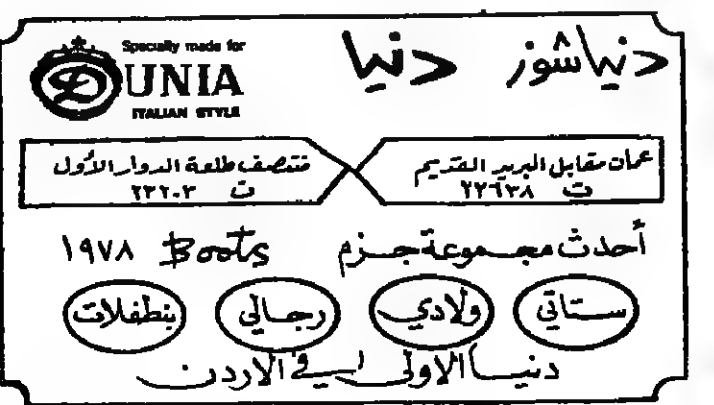 دنيا شوز دنيا
Specially made for
DUNIA
ITALIAN STYLE
عمان مقابل البريد القديم
ت ٢٢٦٣٨
منتصف طلعة الدوار الأول
ت ٢٣٢٠٣
أحدث مجموعة جزم Boots ١٩٧٨
ستاتي ولادي رجالي بنطفلات
دنيا الاولى في الاردن